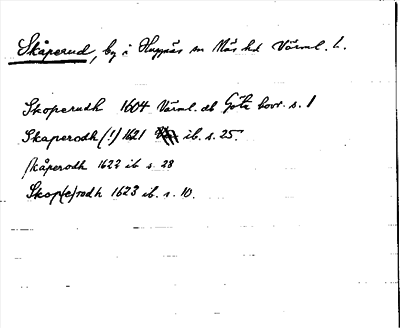 Skåperud, by i Huggnäs sn Näs hd Värml. l.
Skoperudh 1604 Värml. db Göta hovr. s. 1
Skaperodh (!) 1621 ib. s. 25.
skåperodh 1622 ib s. 28
Skop(e)rodh 1623 ib. s. 10.